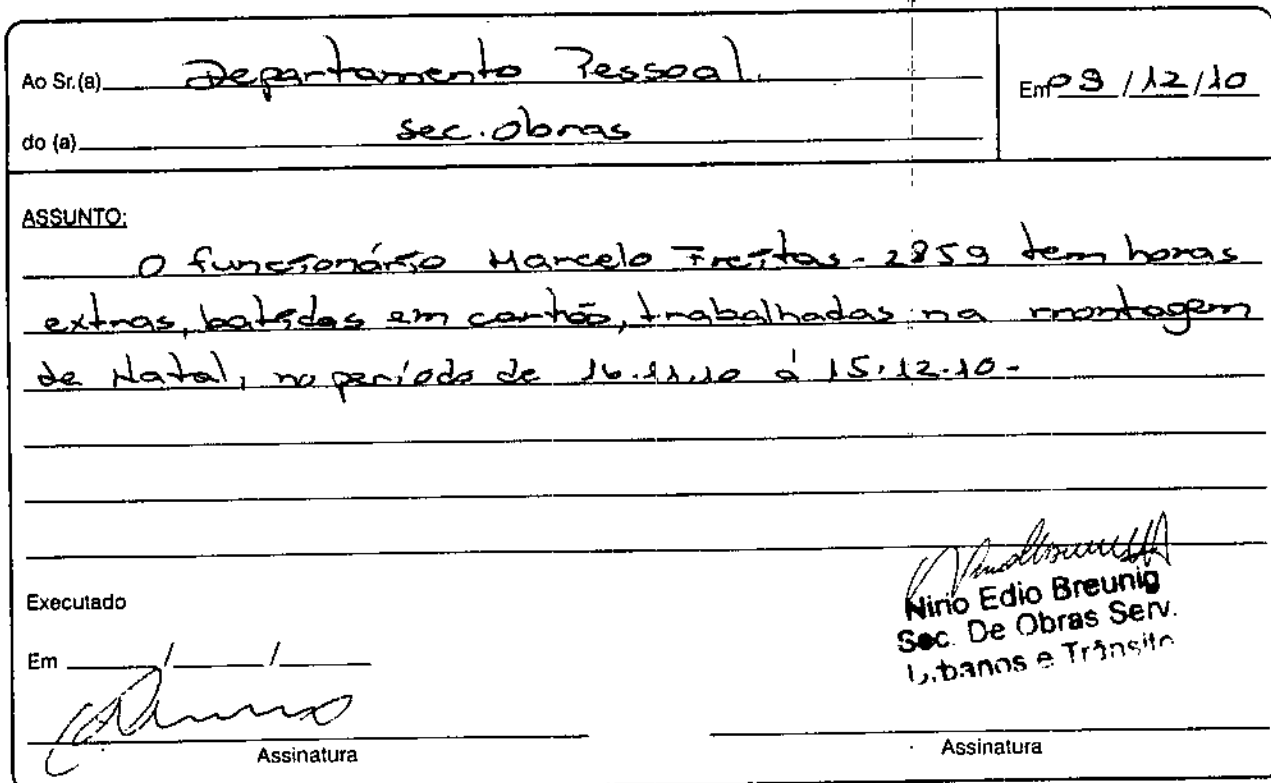 Ao Sr.(a) Departamento Pessoal.
Em 09/12/10
do (a) Sec. Obras
ASSUNTO:
O funcionário Marcelo Freitas - 2859 tem horas
extras, batidas em cartão, trabalhadas na montagem
de Natal, no período de 16.11.10 à 15.12.10-
Nirio Edio Breunig
Executado
Sec. De Obras Serv.
Em / /
Urbanos e Trânsito
Assinatura
Assinatura